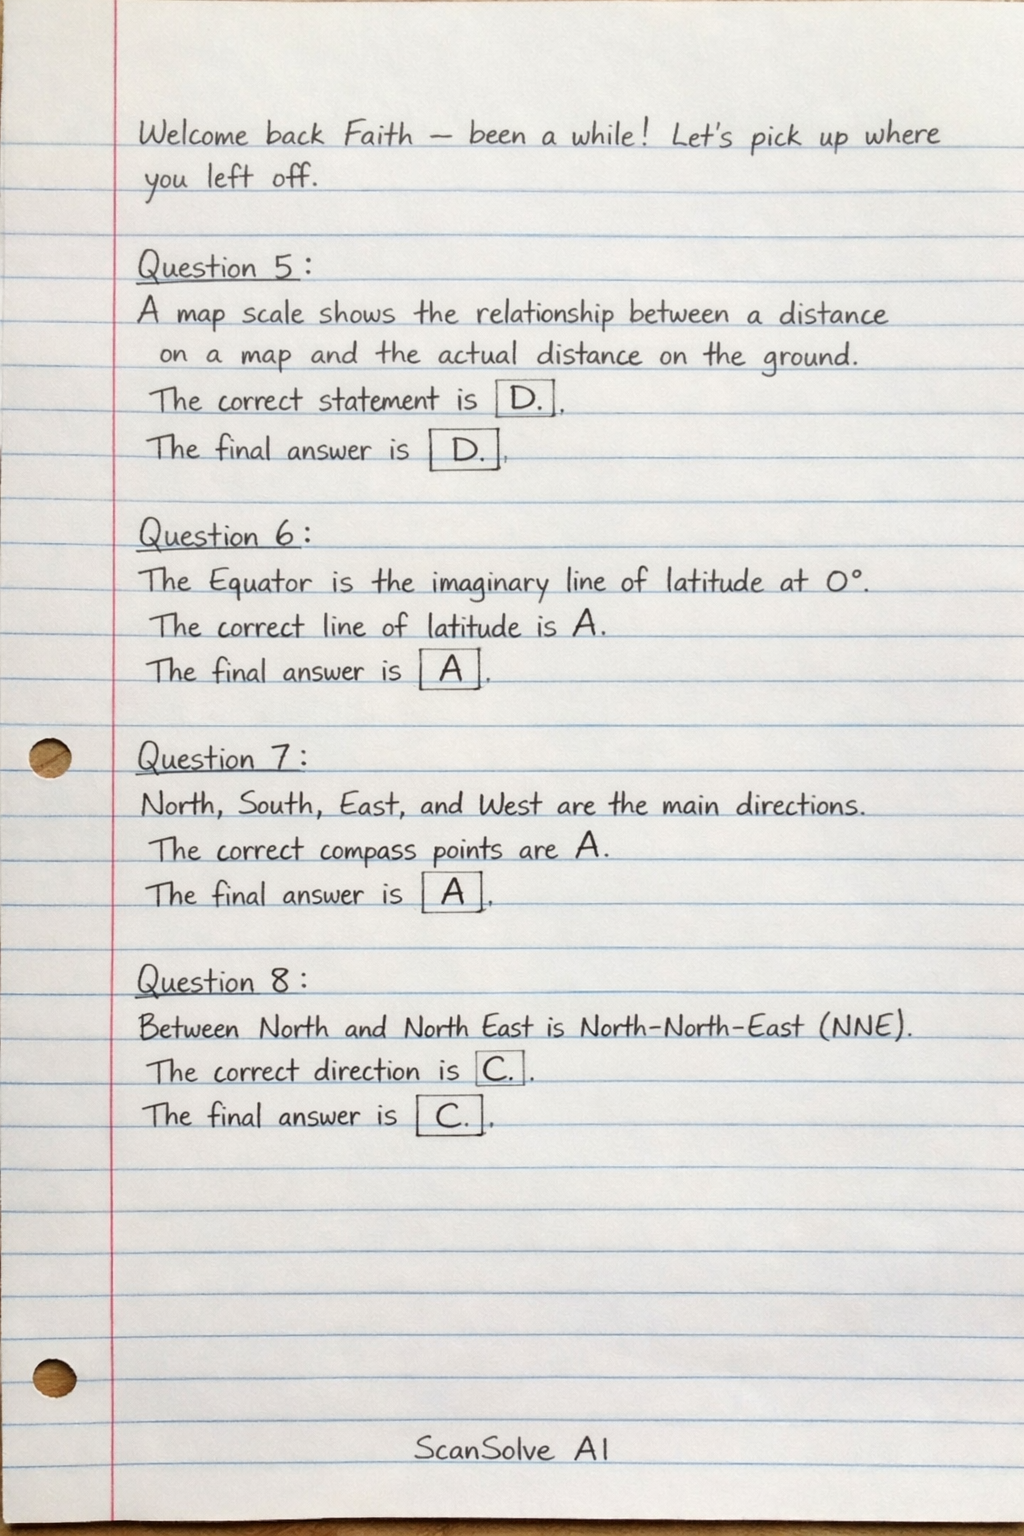 Welcome back Faith – been a while! Let's pick up where
you left off.
Question 5:
A map scale shows the relationship between a distance
on a map and the actual distance on the ground.
The correct statement is D..
The final answer is D..
Question 6:
The Equator is the imaginary line of latitude at 0°.
The correct line of latitude is A.
The final answer is A.
Question 7:
North, South, East, and West are the main directions.
The correct compass points are A.
The final answer is A.
Question 8:
Between North and North East is North-North-East (NNE).
The correct direction is C..
The final answer is C..
ScanSolve AI